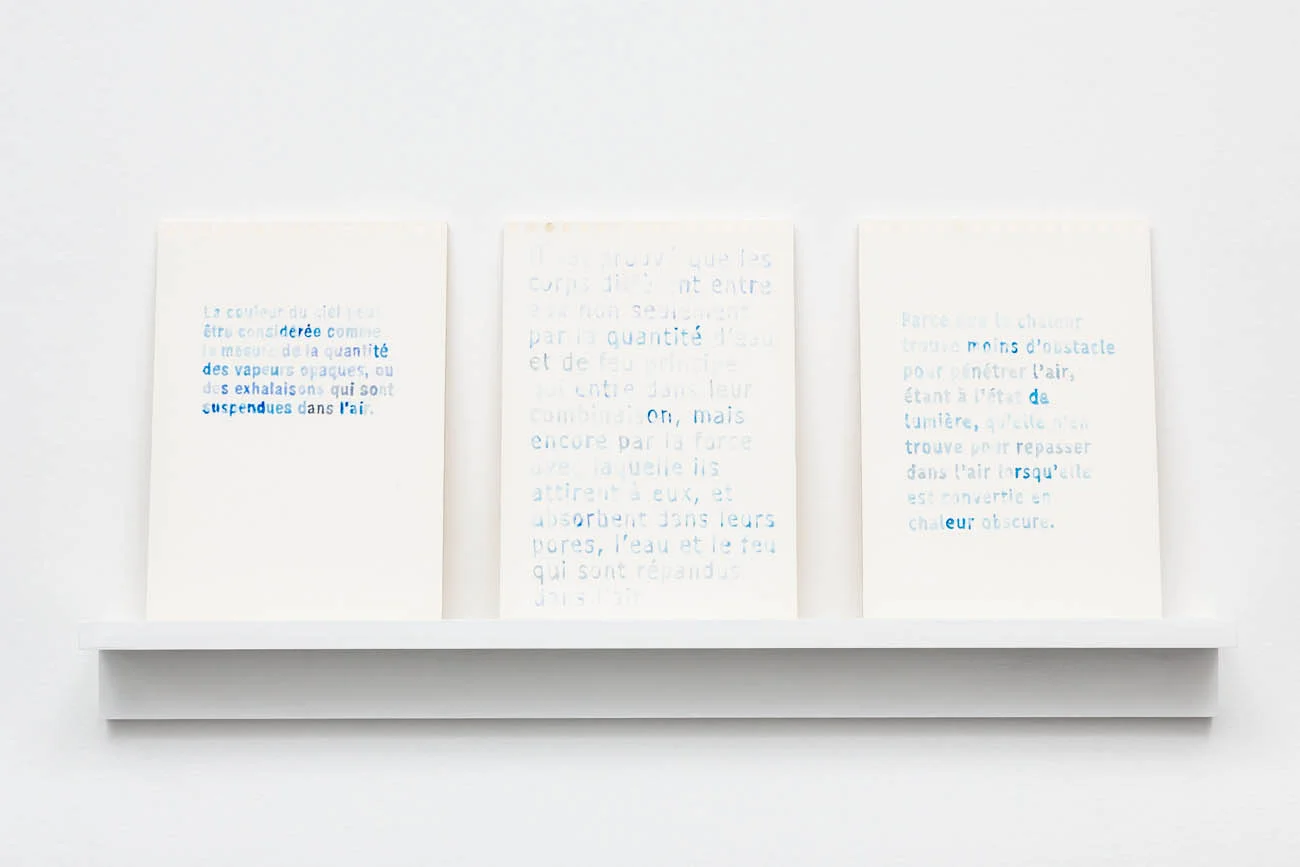 La couleur du ciel peut
être considérée comme
la mesure de la quantité
des vapeurs opaques, ou
des exhalaisons qui sont
suspendues dans l'air.
Il est prouvé que les
corps diffèrent entre
eux non seulement
par la quantité d'eau
et de feu principe
qui entre dans leur
combinaison, mais
encore par la force
avec laquelle ils
attirent à eux, et
absorbent dans leurs
pores, l'eau et le feu
qui sont répandus
dans l'air
Parce que la chaleur
trouve moins d'obstacle
pour pénétrer l'air,
étant à l'état de
lumière, qu'elle n'en
trouve pour repasser
dans l'air lorsqu'elle
est convertie en
chaleur obscure.